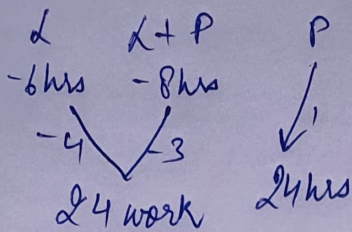 L L+P P
-6hrs -8hrs
-4 -3 1
24 work 24hrs